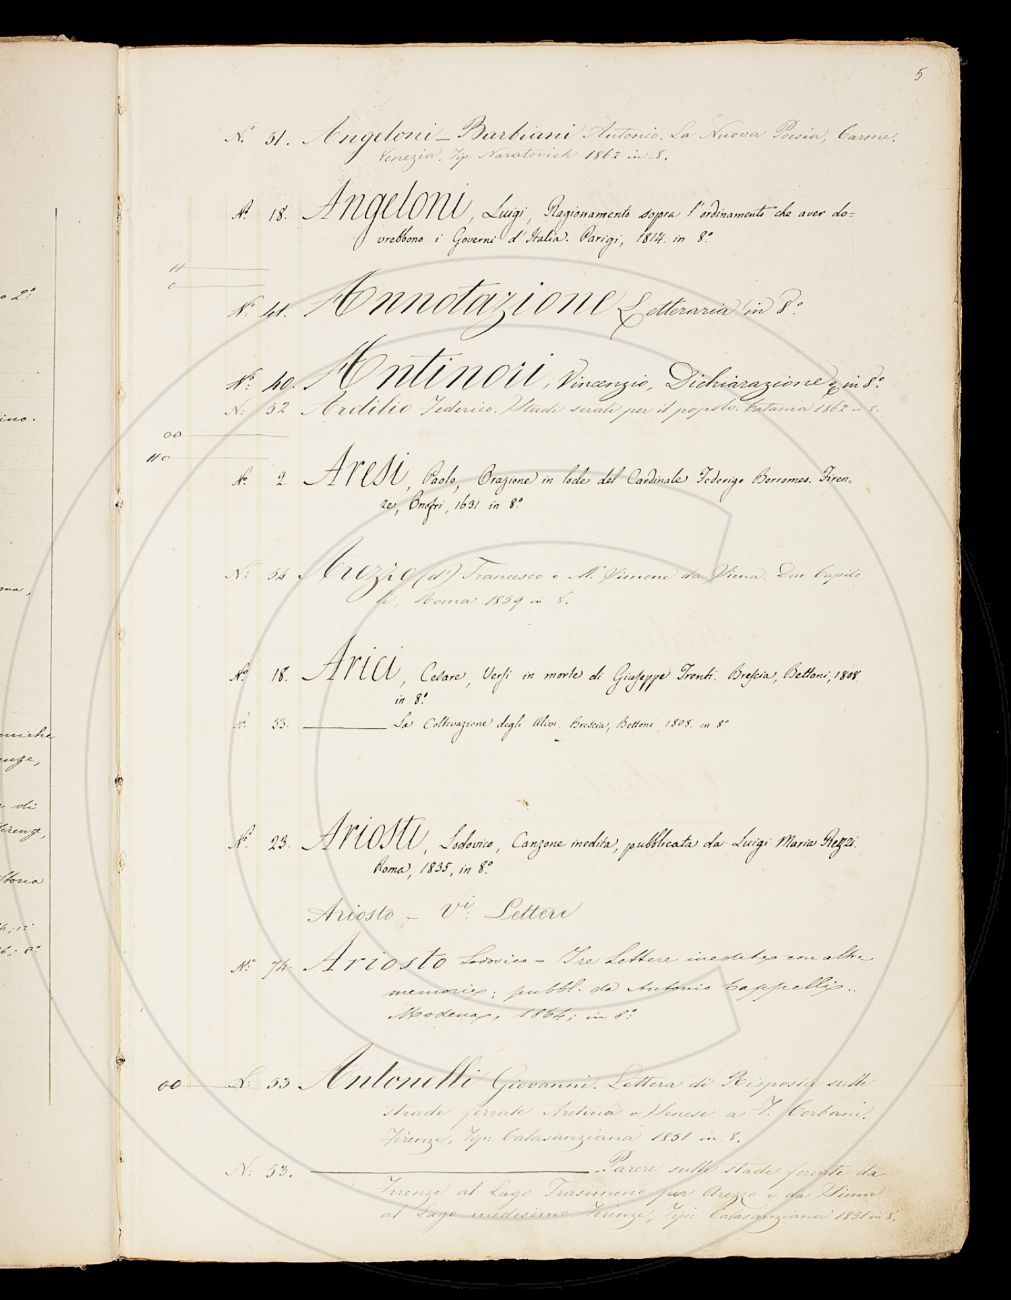 5
N.° 51. Angeloni - Barbiani Antonio. La Nuova Poesia, Carme.
Venezia. Tip. Naratovich 1862 in 8.
N.° 18. Angeloni, Luigi, Ragionamento sopra l'ordinamento che aver do=
vrebbono i Governi d'Italia. Parigi, 1814. in 8.°
N.° 41. Annotazione Letteraria in 8.°
N.° 40. Antinori, Vincenzio, Dichiarazione, in 8.°
N. 52 Federico. Studi serali per il popolo. Catania 1862 in 8.
00
N.° 2. Aresi, Paolo, Orazione in lode del Cardinale Federigo Borromeo. Firen-
ze, Onofri, 1631 in 8.°
N. 54 Arezzo (d') Francesco e M.° Simone da Siena. Due Capito
li, Roma 1859 in 8.
N.° 18. Arici, Cesare, Versi in morte di Giuseppe Trenti. Brescia, Bettoni, 1808
in 8.°
N. 33. La Coltivazione degli Ulivi. Brescia, Bettoni, 1808. in 8.°
N.° 23. Ariosti, Lodovico, Canzone inedita, pubblicata da Luigi Maria Rezzi.
Roma, 1835, in 8.°
Ariosto - V.i Lettere
N.° 74. Ariosto Lodovico - Tre Lettere inedite con altre
memorie; pubbl. da Antonio Cappelli.
Modena, 1864; in 8.°
00 N. 53 Antonelli Giovanni. Lettera di Risposta sulle
strade ferrate Aretina e Senese a T. Corbani.
Firenze, Tip: Calasanziana 1851 in 8.
N. 53. Parere sulle stade ferrate da
Firenze al Lago Trasimeno per Arezzo e da Siena
al Lago medesimo Firenze, Tip: Calasanziana 1851 in 8.